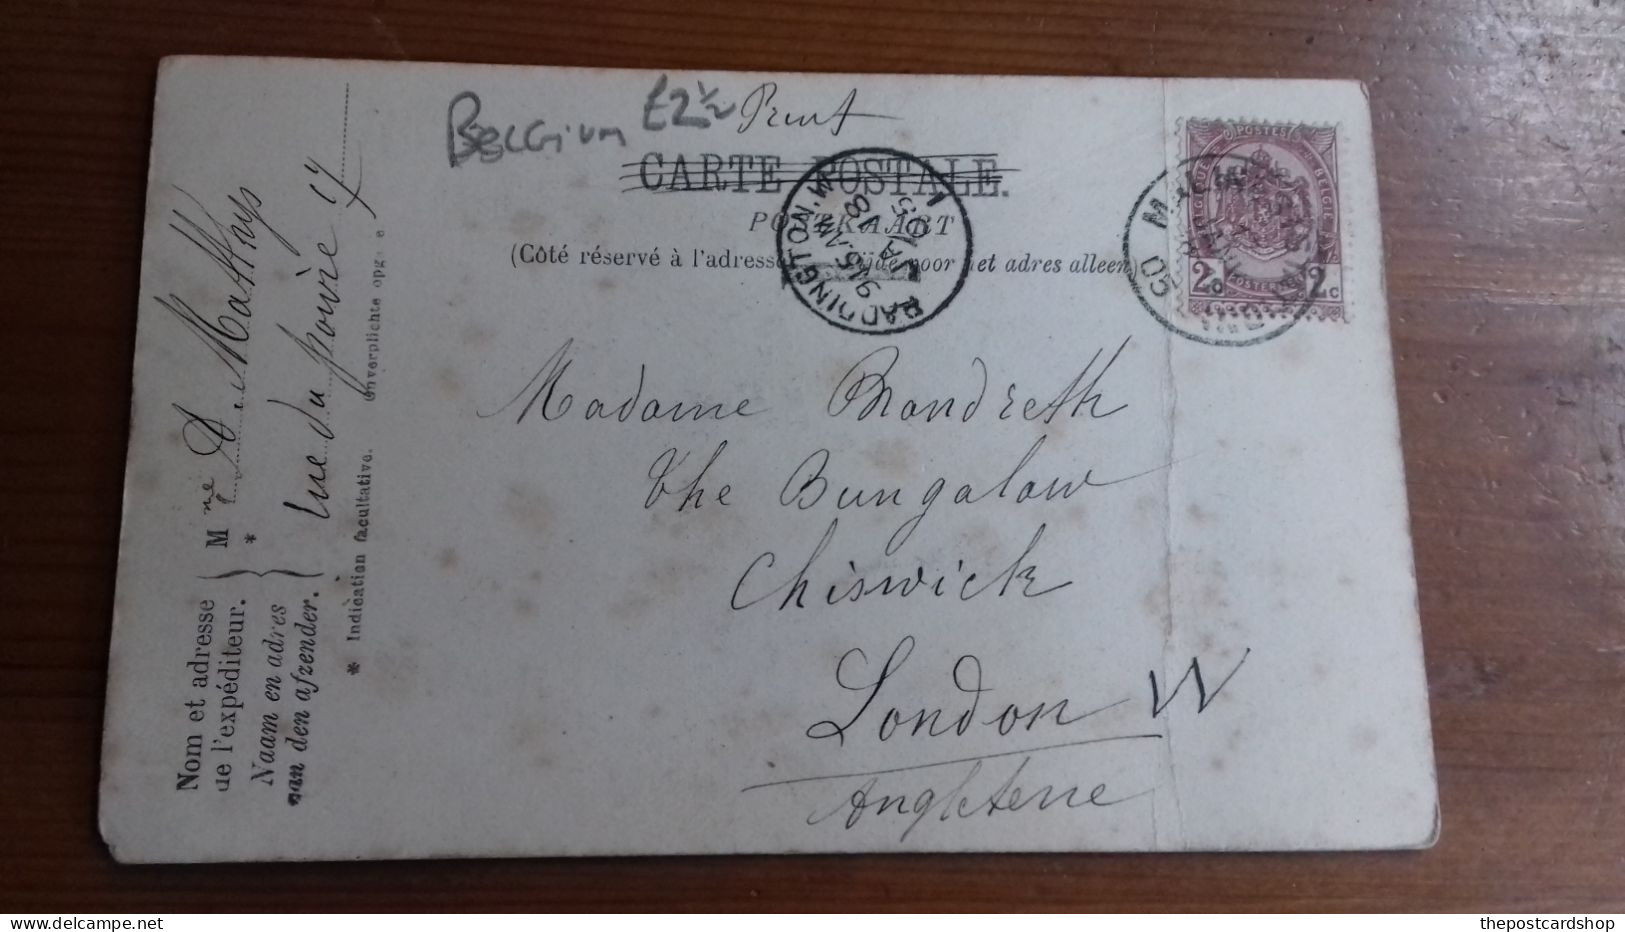 Belgium £2½ Print
CARTE POSTALE.
POSTKAART
(Côté réservé à l'adresse
voor het adres alleen
PADDINGTON. W.
9.15 AM
JA 18
05
2c 2c
POSTES
Madame Brandreth
The Bungalow
Chiswick
London W
Angleterre
Nom et adresse
de l'expéditeur.
Naam en adres
van den afzender.
Mme D. Matthys
rue du poivre 17
* Indication facultative. Onverplichte opgave
thepostcardshop